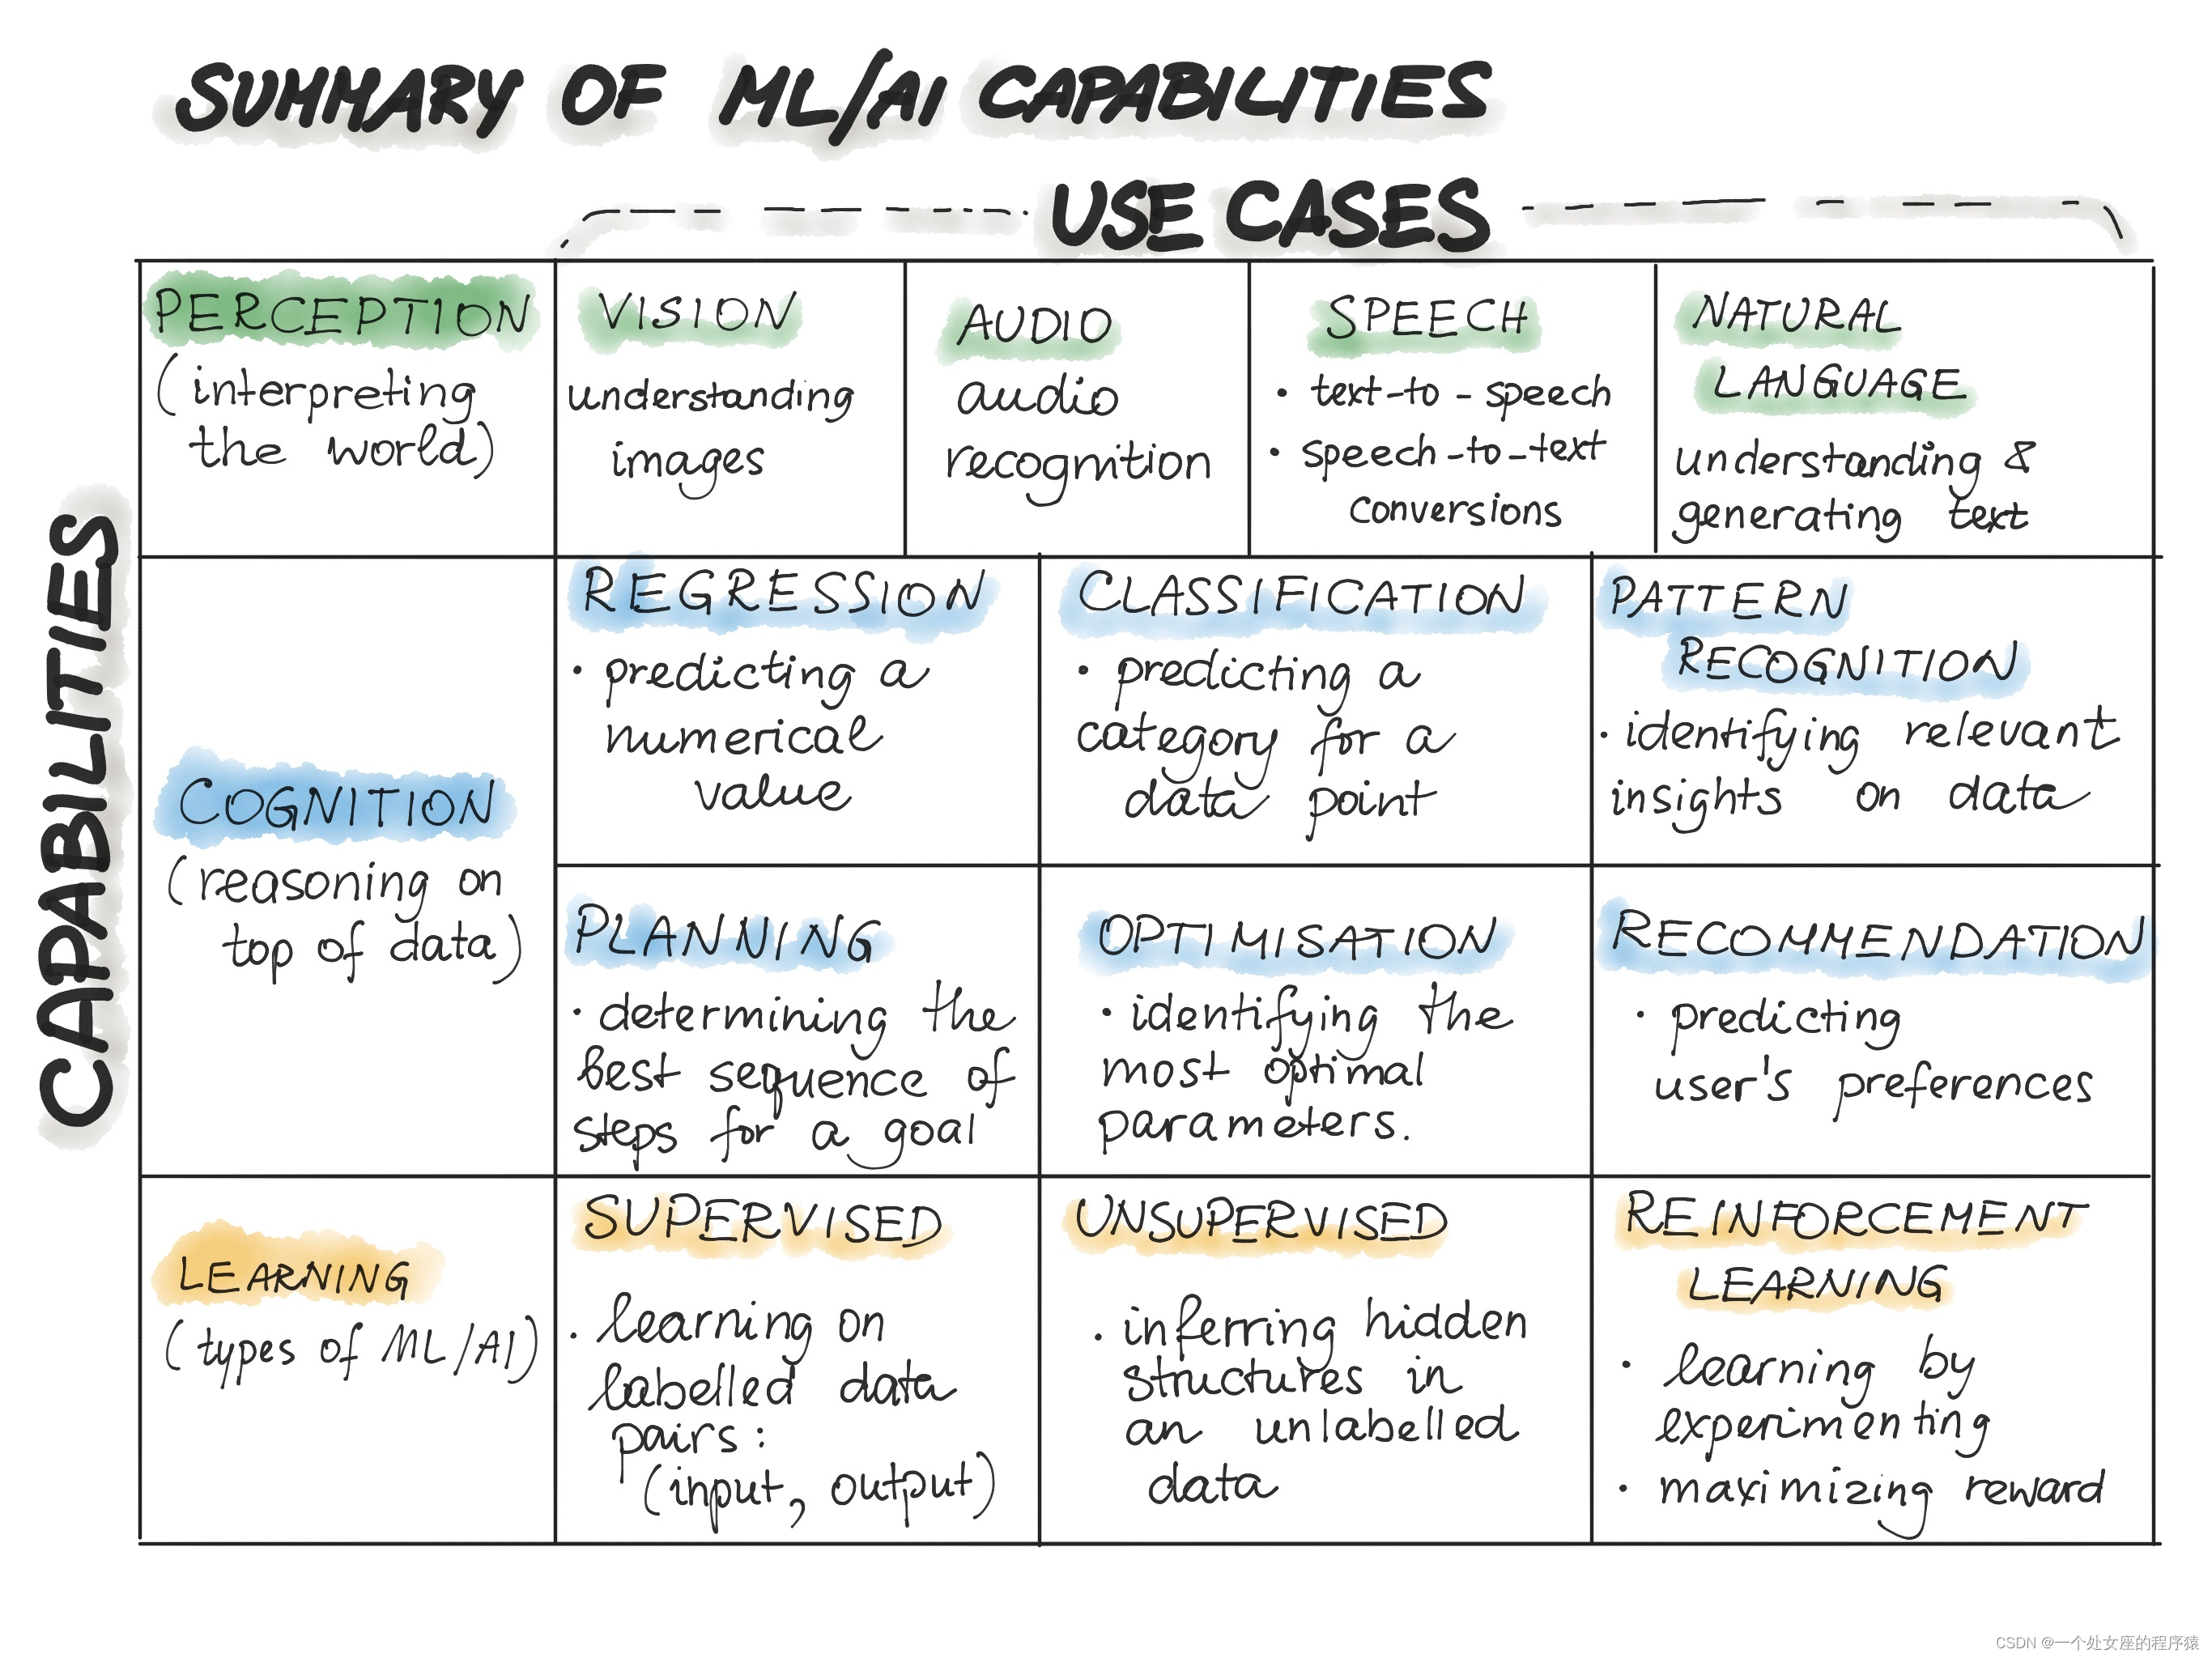 SUMMARY OF ML/AI CAPABILITIES
USE CASES
CAPABILITIES
PERCEPTION
(interpreting
the world)
VISION
understanding
images
AUDIO
audio
recognition
SPEECH
• text-to-speech
• speech-to-text
conversions
NATURAL
LANGUAGE
understanding &
generating text
COGNITION
(reasoning on
top of data)
REGRESSION
• predicting a
numerical
value
CLASSIFICATION
• predicting a
category for a
data point
PATTERN
RECOGNITION
• identifying relevant
insights on data
PLANNING
• determining the
best sequence of
steps for a goal
OPTIMISATION
• identifying the
most optimal
parameters.
RECOMMENDATION
• predicting
user's preferences
LEARNING
(types of ML/AI)
SUPERVISED
• learning on
labelled data
pairs:
(input, output)
UNSUPERVISED
• inferring hidden
structures in
an unlabelled
data
REINFORCEMENT
LEARNING
• learning by
experimenting
• maximizing reward
CSDN @一个处女座的程序猿